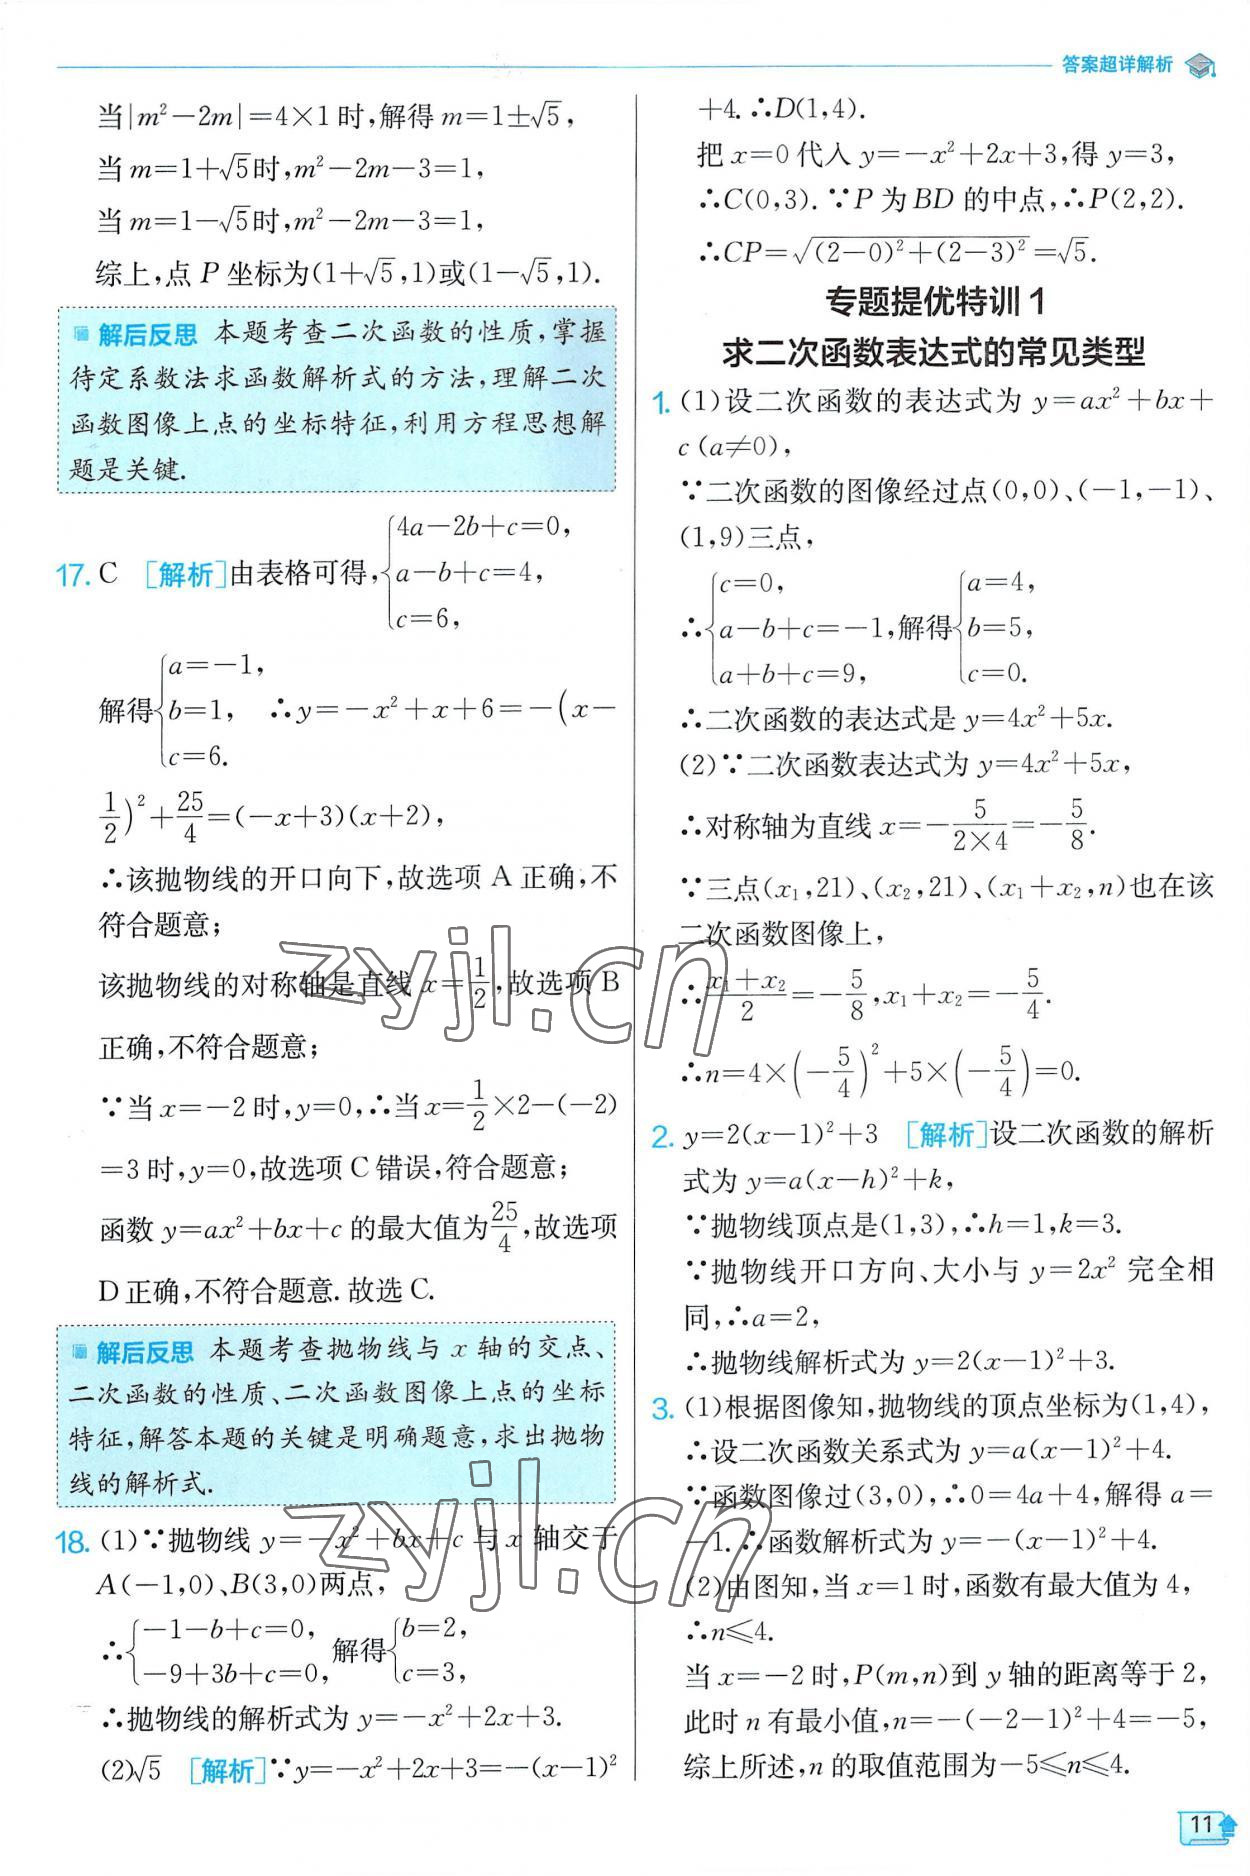 答案超详解析
当|m²-2m|=4×1时,解得m=1±√5,
当m=1+√5时,m²-2m-3=1,
当m=1-√5时,m²-2m-3=1,
综上,点P坐标为(1+√5,1)或(1-√5,1).
解后反思 本题考查二次函数的性质,掌握
待定系数法求函数解析式的方法,理解二次
函数图像上点的坐标特征,利用方程思想解
题是关键.
17. C [解析]由表格可得,{4a-2b+c=0,
a-b+c=4,
c=6,
解得{a=-1,
b=1, ∴y=-x²+x+6=-(x-
c=6.
1/2)²+25/4=(-x+3)(x+2),
∴该抛物线的开口向下,故选项A正确,不
符合题意;
该抛物线的对称轴是直线x=1/2,故选项B
正确,不符合题意;
∵当x=-2时,y=0,∴当x=1/2×2-(-2)
=3时,y=0,故选项C错误,符合题意;
函数y=ax²+bx+c的最大值为25/4,故选项
D正确,不符合题意.故选C.
解后反思 本题考查抛物线与x轴的交点、
二次函数的性质、二次函数图像上点的坐标
特征,解答本题的关键是明确题意,求出抛物
线的解析式.
18. (1)∵抛物线y=-x²+bx+c与x轴交于
A(-1,0)、B(3,0)两点,
∴{-1-b+c=0, 解得{b=2,
-9+3b+c=0, c=3,
∴抛物线的解析式为y=-x²+2x+3.
(2)√5 [解析]∵y=-x²+2x+3=-(x-1)²
+4.∴D(1,4).
把x=0代入y=-x²+2x+3,得y=3,
∴C(0,3).∵P为BD的中点,∴P(2,2).
∴CP=√((2-0)²+(2-3)²)=√5.
专题提优特训1
求二次函数表达式的常见类型
1. (1)设二次函数的表达式为y=ax²+bx+
c(a≠0),
∵二次函数的图像经过点(0,0)、(-1,-1)、
(1,9)三点,
∴{c=0, 解得{a=4,
a-b+c=-1, b=5,
a+b+c=9, c=0.
∴二次函数的表达式是y=4x²+5x.
(2)∵二次函数表达式为y=4x²+5x,
∴对称轴为直线x=-5/(2×4)=-5/8.
∵三点(x₁,21)、(x₂,21)、(x₁+x₂,n)也在该
二次函数图像上,
∴(x₁+x₂)/2=-5/8,x₁+x₂=-5/4.
∴n=4×(-5/4)²+5×(-5/4)=0.
2. y=2(x-1)²+3 [解析]设二次函数的解析
式为y=a(x-h)²+k,
∵抛物线顶点是(1,3),∴h=1,k=3.
∵抛物线开口方向、大小与y=2x²完全相
同,∴a=2,
∴抛物线解析式为y=2(x-1)²+3.
3. (1)根据图像知,抛物线的顶点坐标为(1,4),
∴设二次函数关系式为y=a(x-1)²+4.
∵函数图像过(3,0),∴0=4a+4,解得a=
-1.∴函数解析式为y=-(x-1)²+4.
(2)由图知,当x=1时,函数有最大值为4,
∴n≤4.
当x=-2时,P(m,n)到y轴的距离等于2,
此时n有最小值,n=-(-2-1)²+4=-5,
综上所述,n的取值范围为-5≤n≤4.
zyjl.cn
zyjl.cn
11